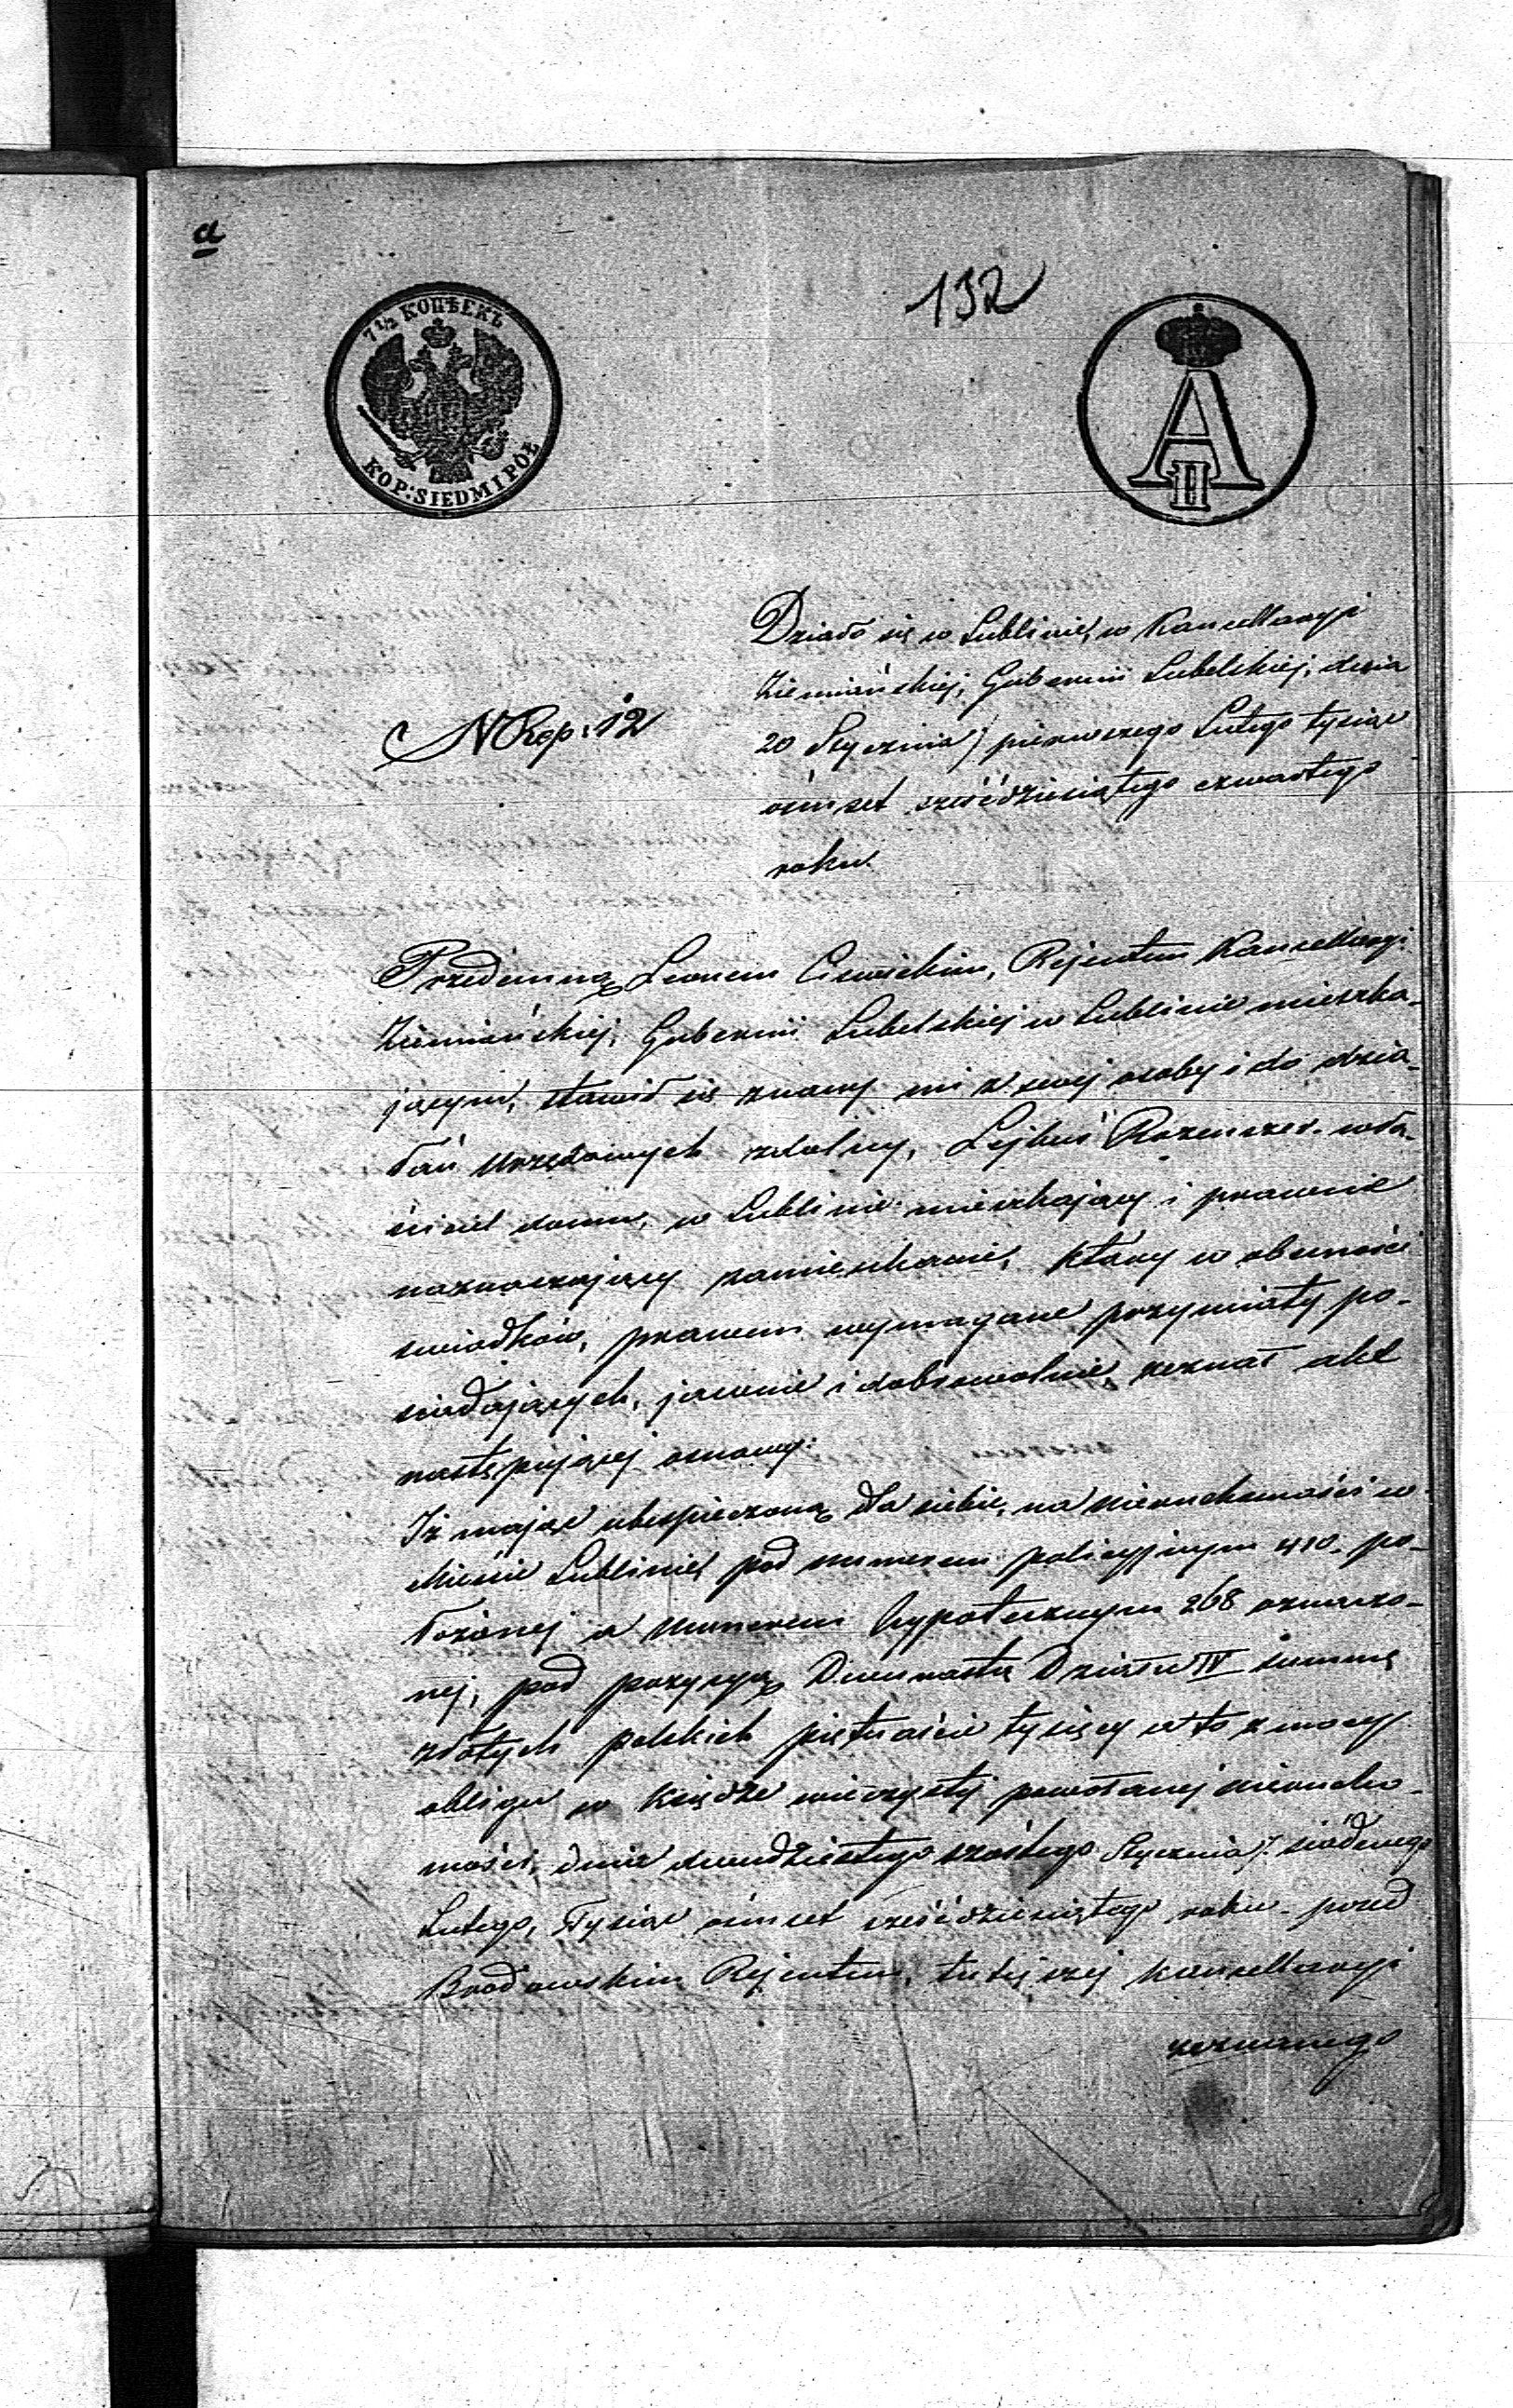 a
132
7 1/2 КОПѢЕКЪ
KOP: SIEDM I PÓŁ
A II
Działo się w Lublinie, w Kancellaryi
Ziemiańskiej, Gubernii Lubelskiej, dnia
N Rep: 12
20 Stycznia / pierwszego Lutego tysiąc
ośmset sześćdziesiątego czwartego
roku.
Przedemną Leonem Rejentem Kancellaryi
Ziemiańskiej, Gubernii Lubelskiej w Lublinie mieszka-
jącym, stawił się znany mi z swej osoby i do dzia-
łań urzędowych zdolny, Lejbuś Rozenszer. wła-
ściciel domu, w Lublinie mieszkający i prawnie
naznaczający zamieszkanie, który w obecności
swiadków, prawem wymagane przymioty po-
siadających, jawnie i dobrowolnie zeznał akt
następującej osnowy:
Iż mając ubespieczoną dla siebie, na nieruchomości w
Mieście Lublinie, pod numerem policyjnym 410. po-
łożonej a numerem hypotecznym 268 oznaczo-
nej, pod pozycyą Dwunastą Działu IV summę
złotych polskich piętnaście tysięcy a to z mocy
obligu w księdze wieczystej powołanej nierucho-
mości, dnia dwudziestego szóstego Stycznia /. siódmego
Lutego, Tysiąc ośmset sześćdziesiątego roku. przed
Brodowskim Rejentem, tutejszej kancellaryi
zeznanego